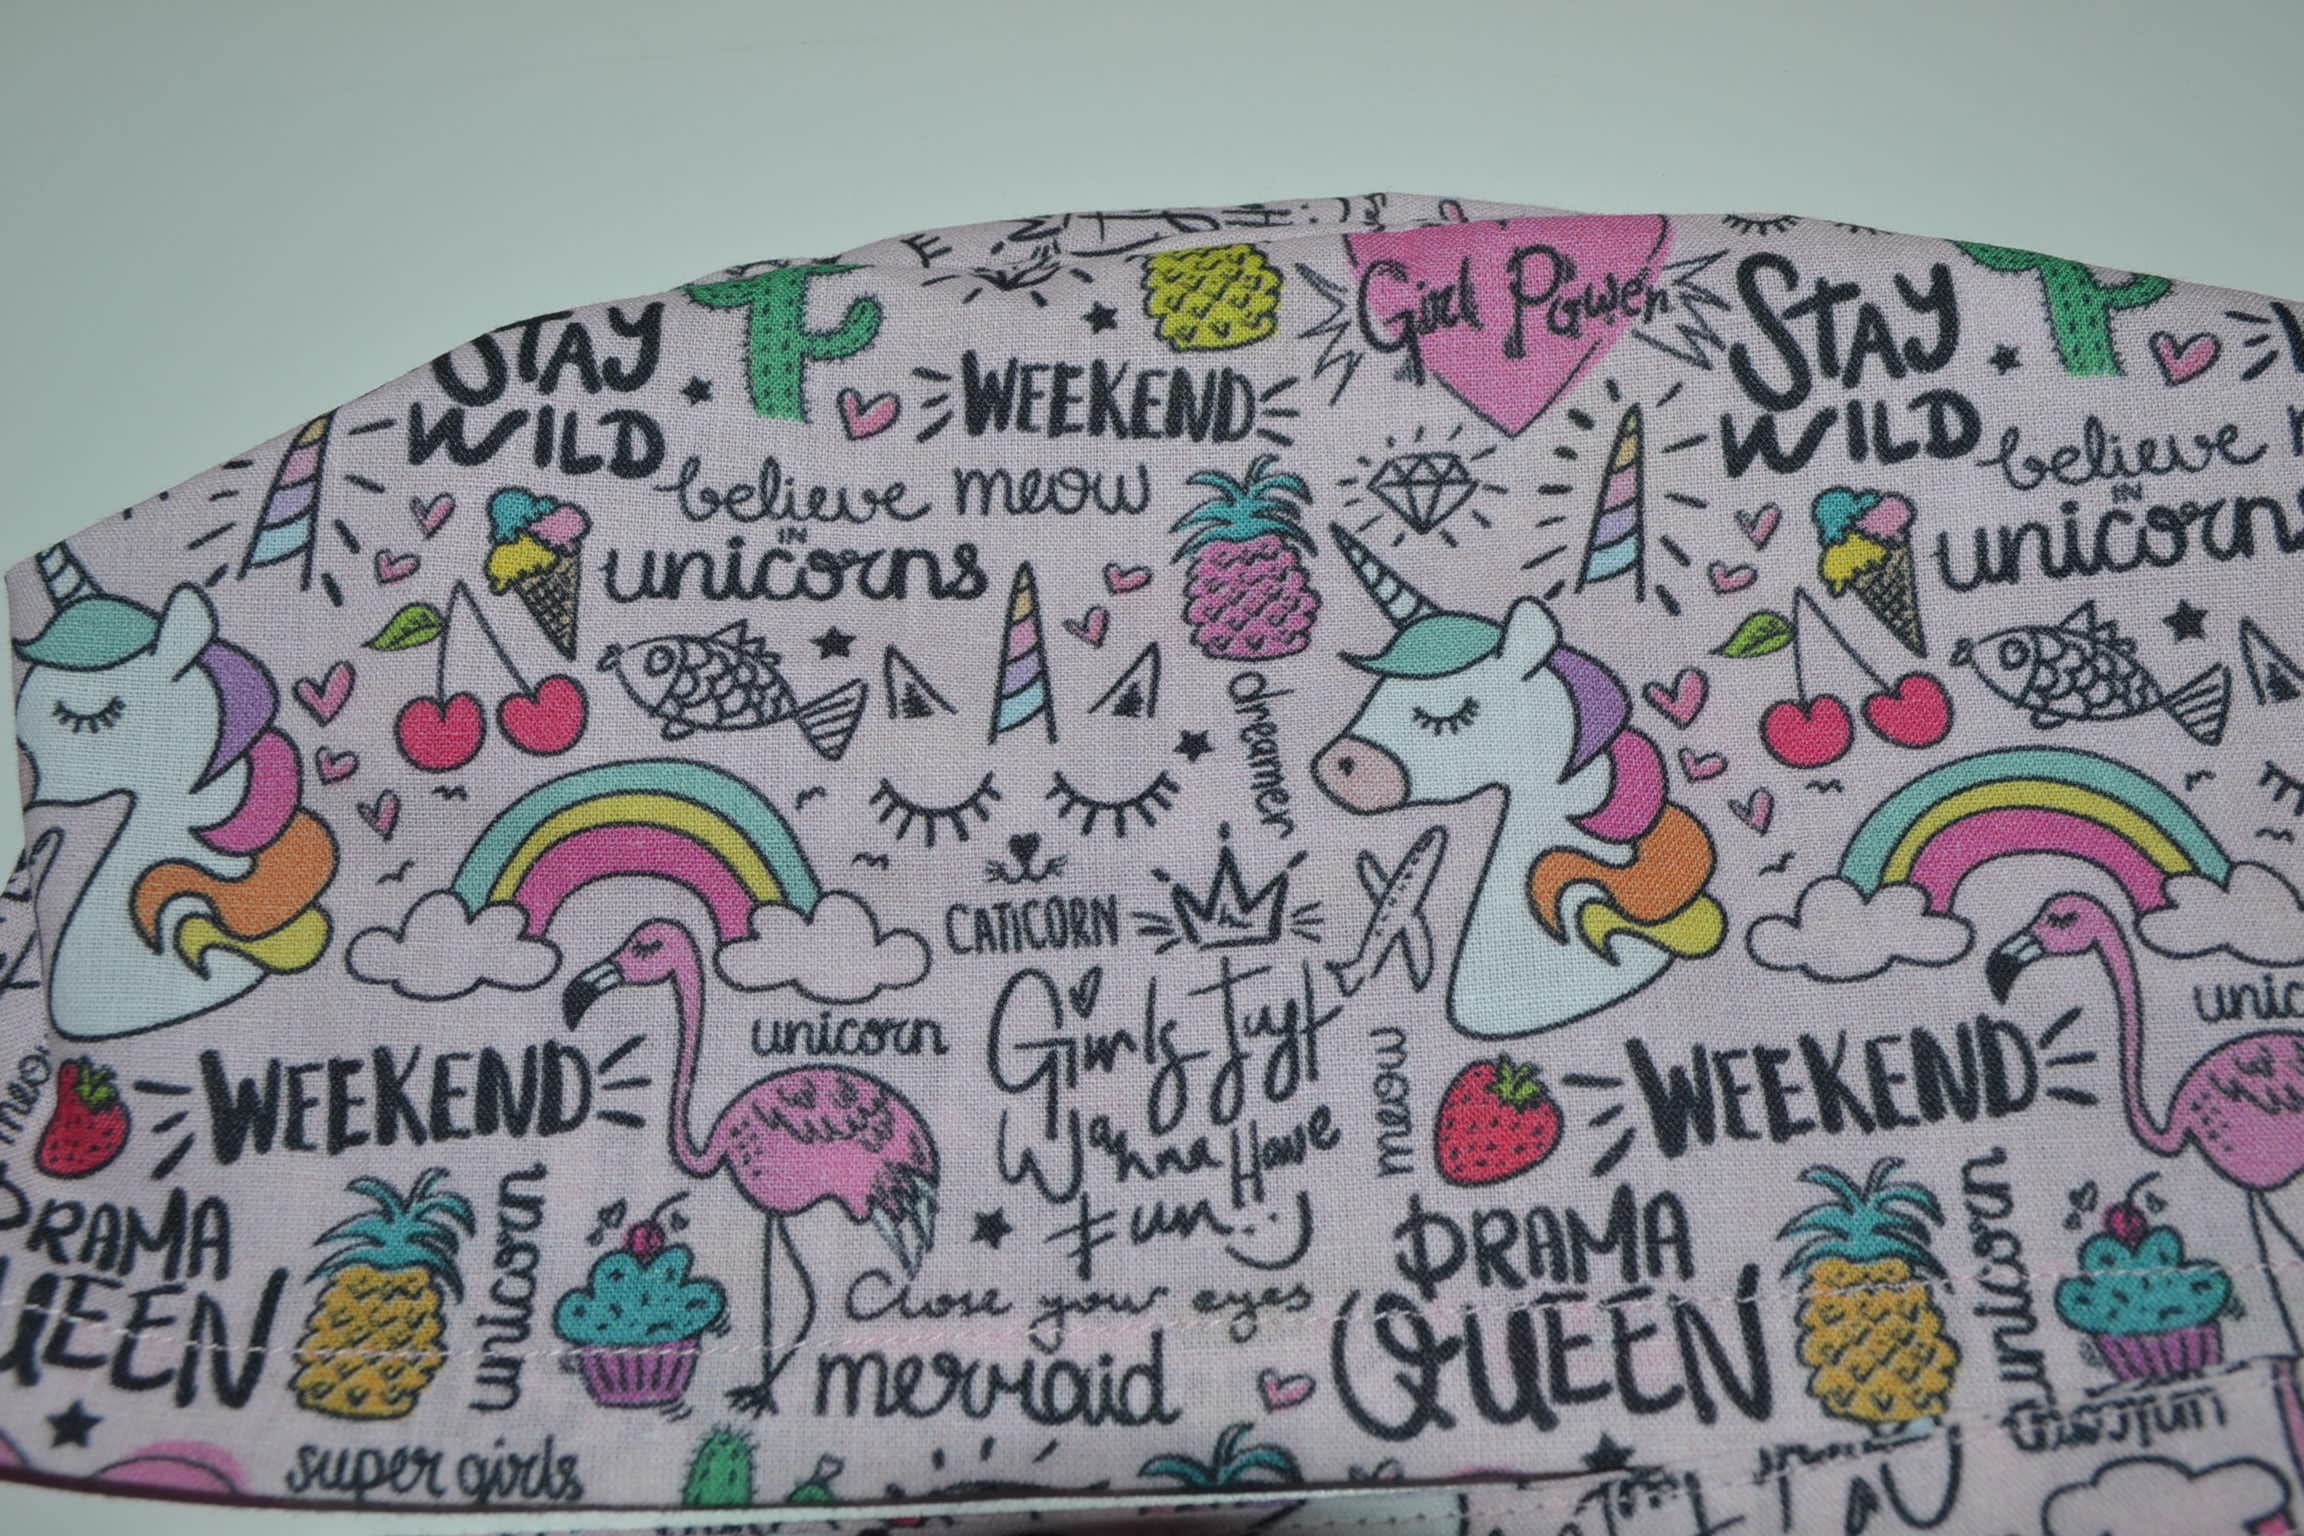 Girl Power
STAY
WILD
WEEKEND
believe meow
IN
unicorns
STAY
WILD
believe
IN
unicorns
dreamer
CATICORN
unicorn
Girls Just
Wanna Have
Fun
meow
WEEKEND
WEEKEND
DRAMA
QUEEN
unicorn
unicorn
Close your eyes
mermaid
super girls